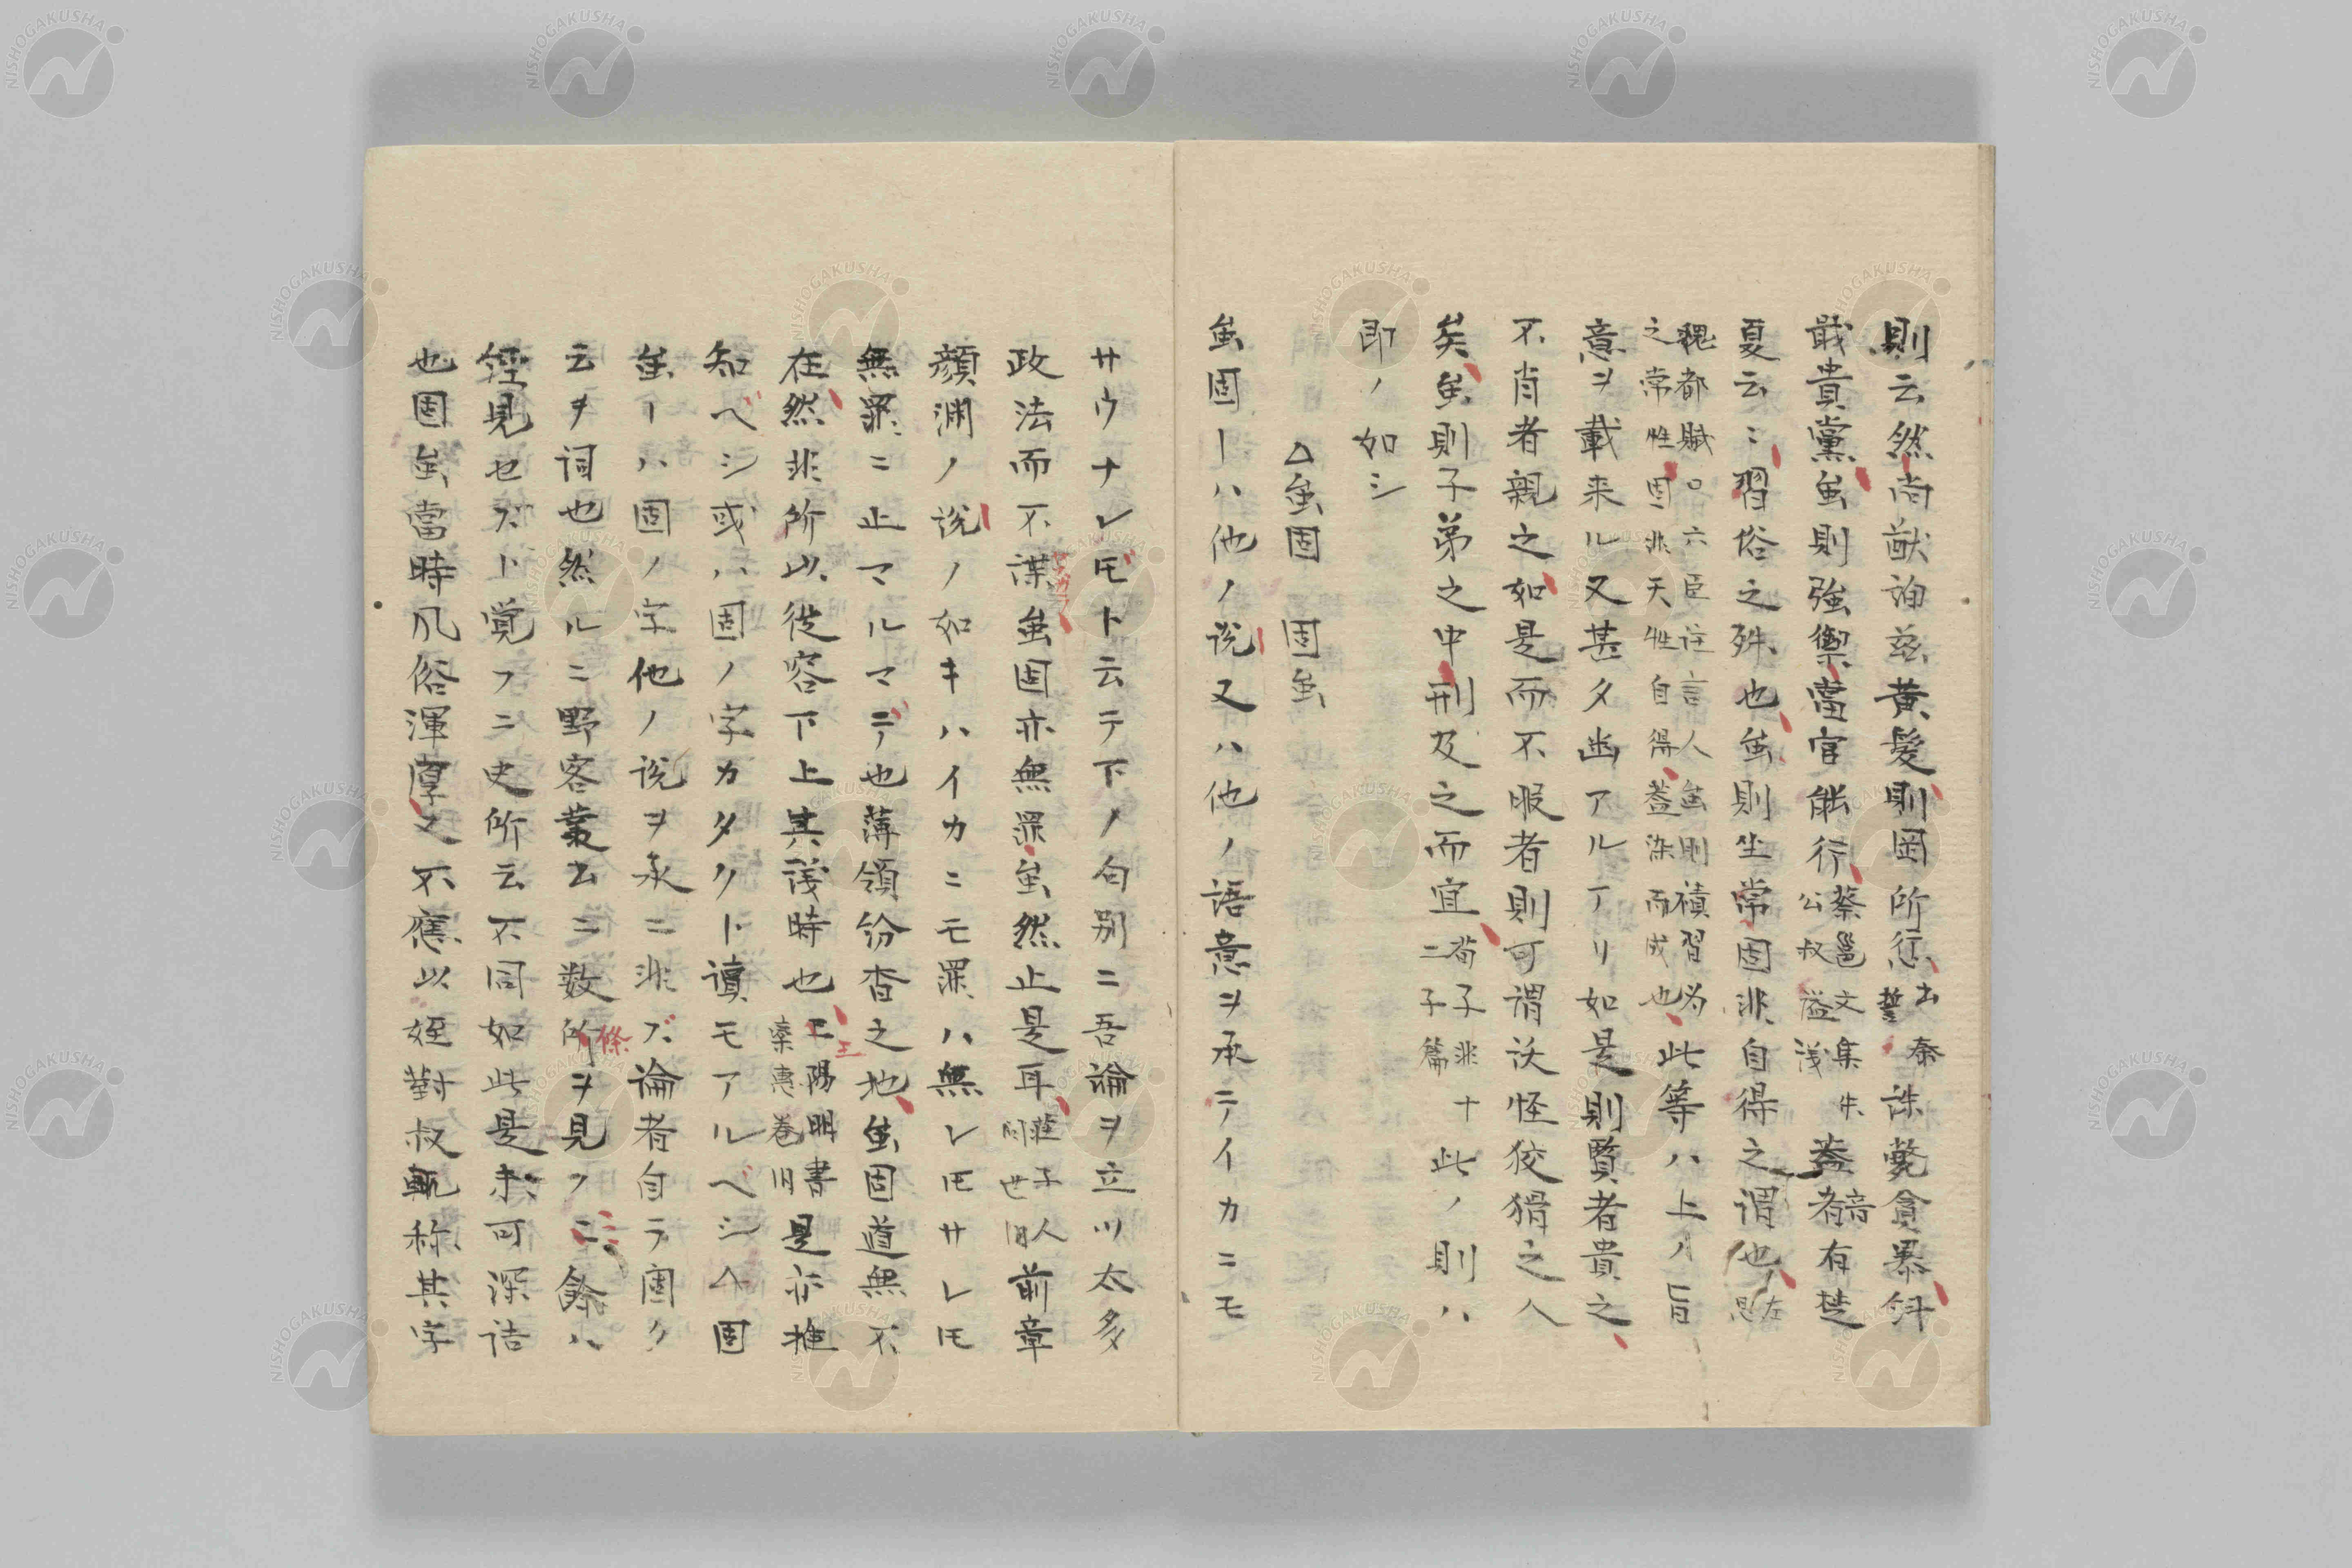 則云然尚猷詢茲黄髪則罔所愆 書秦誓 誅斃貪暴糾
戢貴黨虽則強禦當官能行 蔡邕文集朱公叔謚議 蓋音者有楚
夏云云習俗之殊也虽則生常固非自得之謂也 左思
魏都賦〇六臣註言人虽則積習為之常性固非天性自得蓋染而成也 此等ハ上ノ旨
意ヲ載来ル又甚タ幽アルアリ如是則賢者貴之
不肖者親之如是而不服者則可謂訞怪狡猾之人
矣虽則子弟之中刑及之而宜 荀子非十二子篇 此ノ則ハ
即ノ如シ
△虽固 固虽
虽固ーハ他ノ説又ハ他ノ語意ヲ承テイカニモ
サウナレ𪜈ト云テ下ノ句別ニ吾論ヲ立ツ太多
政法而不諜虽固亦無罪虽然止是耳 荘子人間世 前章
顔渊ノ説ノ如キハイカニモ罪ハ無レ𪜈サレ𪜈
無罪ニ止マルマデ也薄領紛沓之地虽固道無不
在然非所以従容下上其議時也 王陽明書 是亦推
知ベシ或ハ固ノ字カタクト讀モアルベシ△固
虽ーハ固ノ字他ノ説ヲ承ニ非ズ論者自ラ固ク
云ヲ詞也然ルニ野客叢書ニ数條ヲ見フ餘ハ
經見セズト覚フニ史所云不同如此是未可深詰
也固虽當時风俗渾厚之不應以姪對叔輒称其字